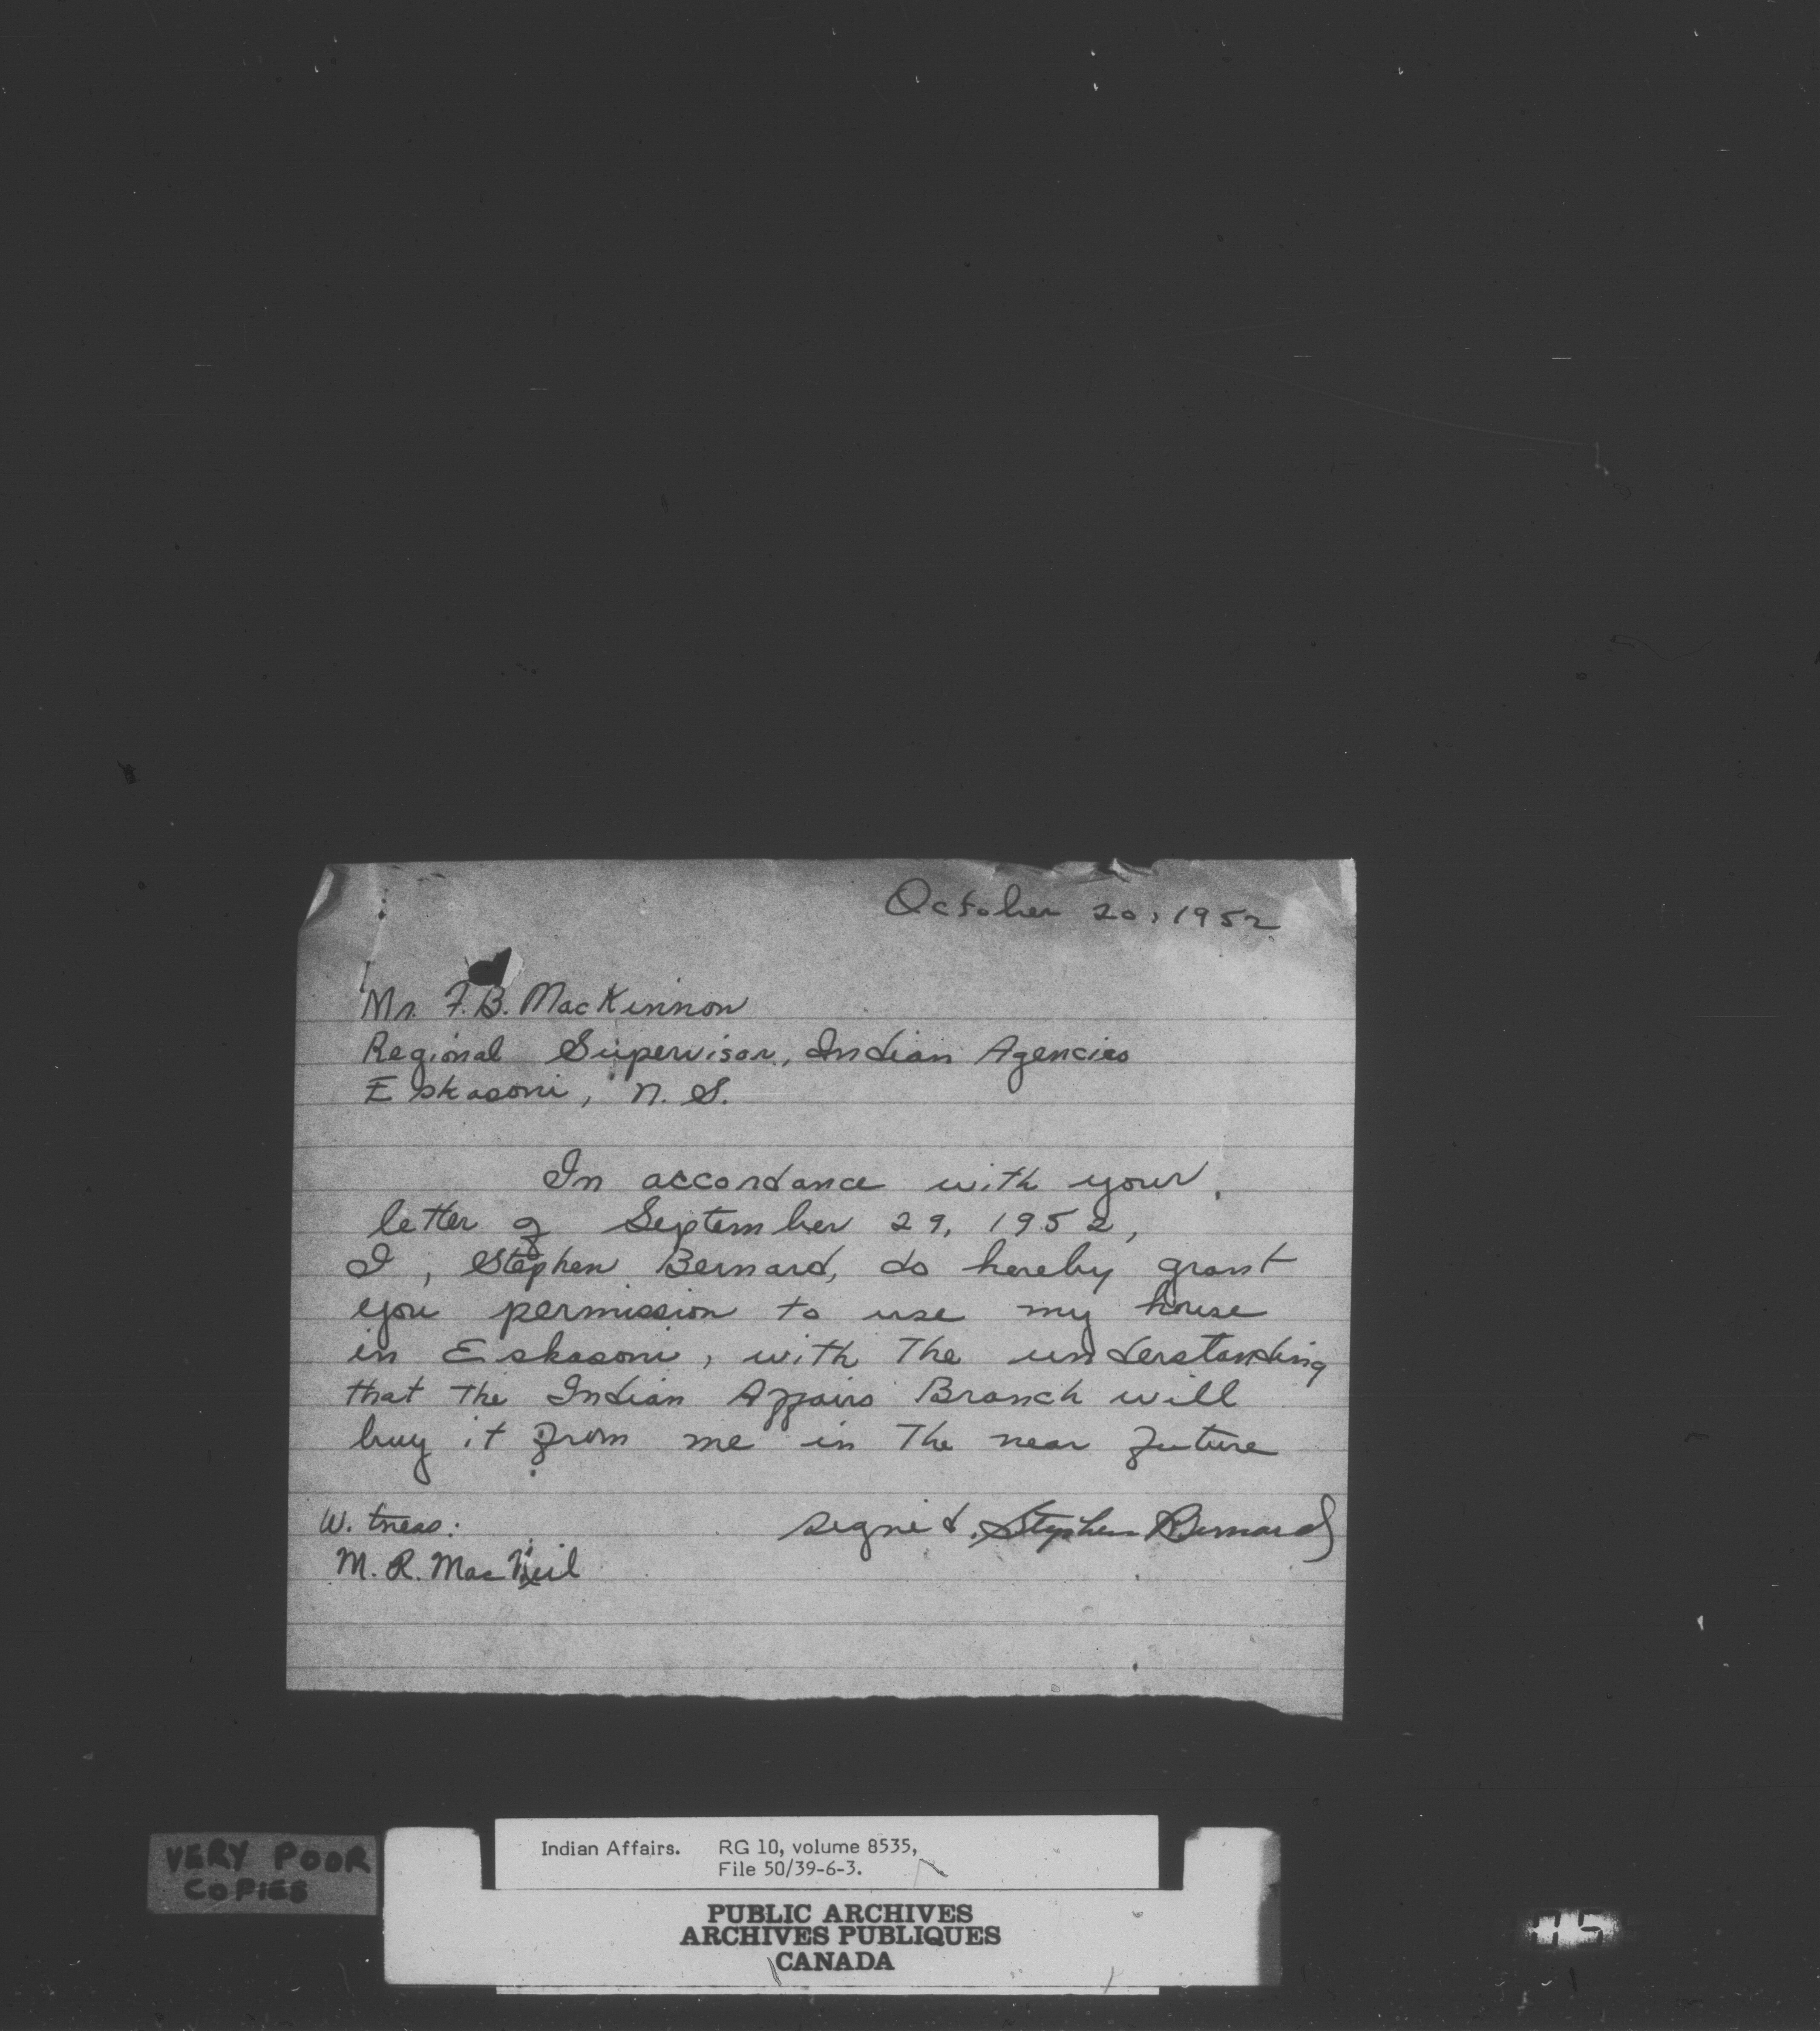 October 20, 1952
Mr. F. B. MacKinnon
Regional Supervisor, Indian Agencies
Eskasoni, N. S.
In accordance with your
letter of September 29, 1952,
I, Stephen Bernard, do hereby grant
you permission to use my house
in Eskasoni, with The understanding
that The Indian Affairs Branch will
buy it from me in The near future
Witness:
signed, Stephen Bernard
M. R. MacNeil
VERY POOR
COPIES
Indian Affairs. RG 10, volume 8535,
File 50/39-6-3.
PUBLIC ARCHIVES
ARCHIVES PUBLIQUES
CANADA